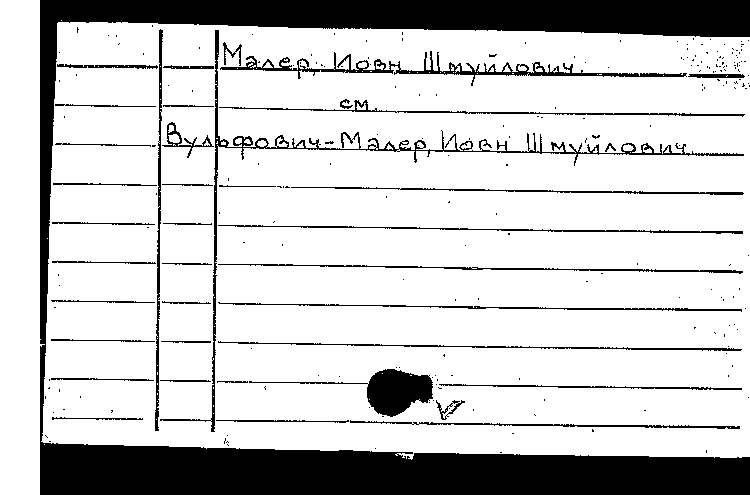 Малер, Иовн Шмуйлович.
см.
Вульфович-Малер, Иовн Шмуйлович.